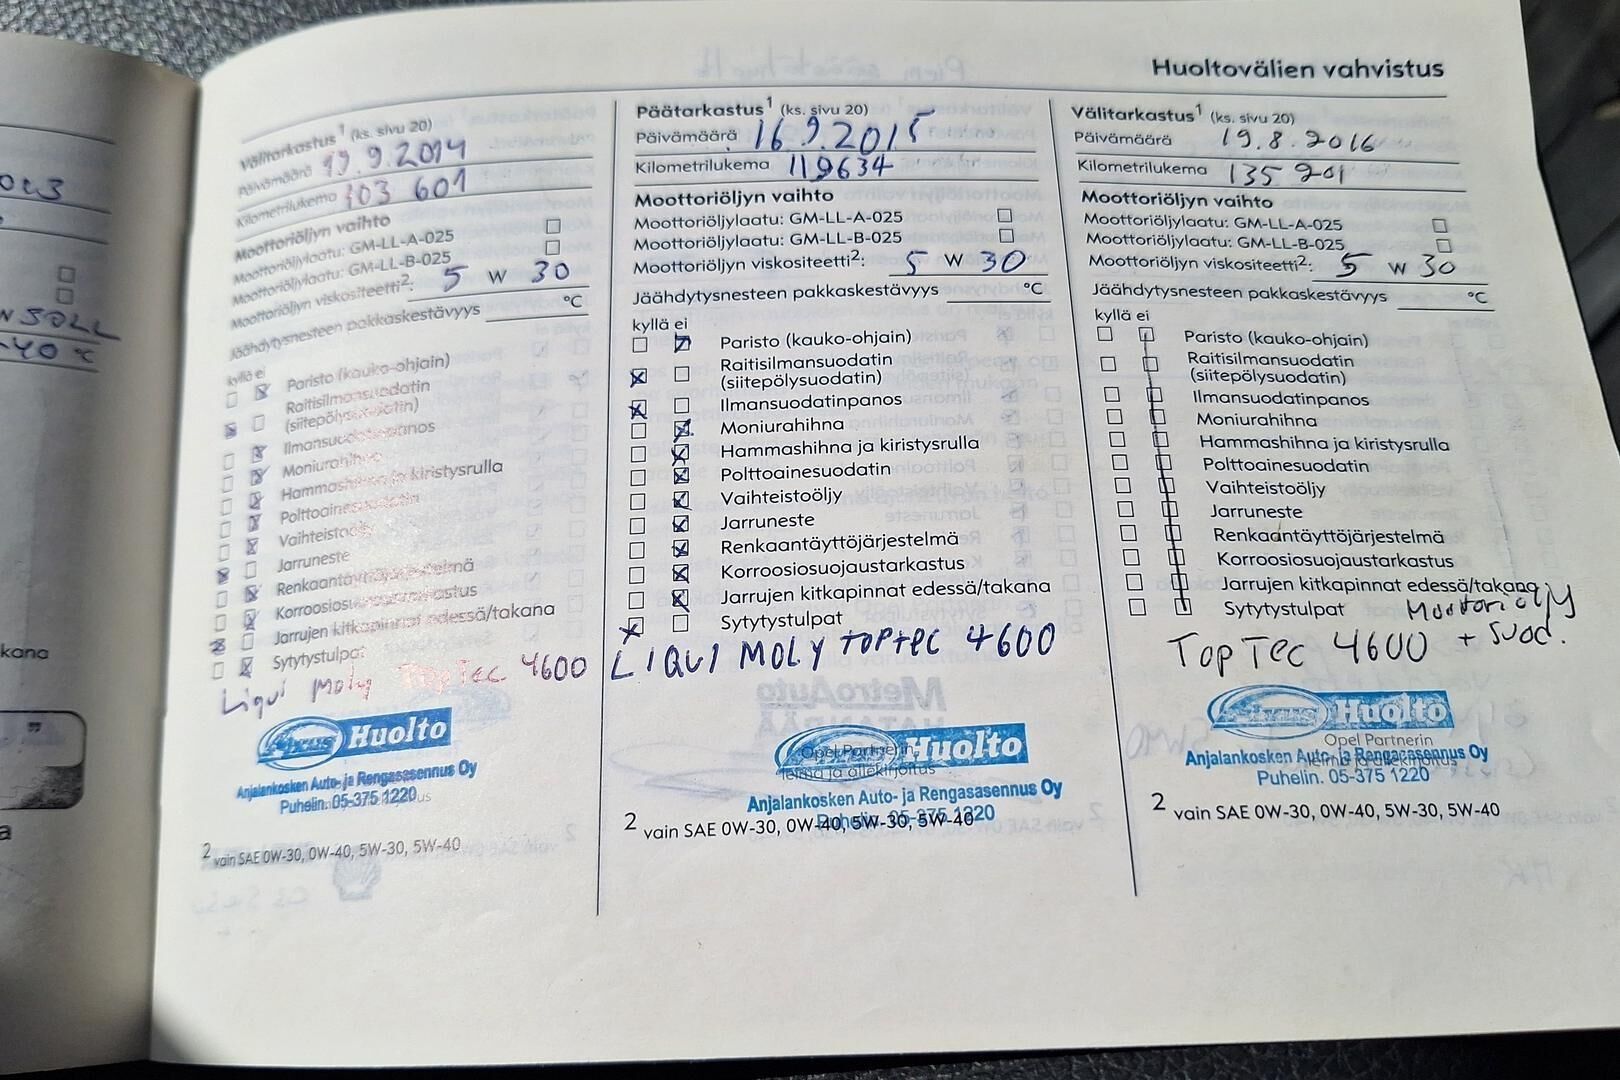 Huoltovälien vahvistus
Välitarkastus1 (ks. sivu 20)
Päivämäärä 19.9.2014
Kilometrilukema 103 601
Moottoriöljyn vaihto
Moottoriöljylaatu: GM-LL-A-025
Moottoriöljylaatu: GM-LL-B-025
Moottoriöljyn viskositeetti2: 5 W 30
Jäähdytysnesteen pakkaskestävyys °C
kyllä ei
Paristo (kauko-ohjain)
Raitisilmansuodatin
(siitepölysuodatin)
Ilmansuodatinpanos
Moniurahihna
Hammashihna ja kiristysrulla
Polttoainesuodatin
Vaihteistoöljy
Jarruneste
Renkaantäyttöjärjestelmä
Korroosiosuojaustarkastus
Jarrujen kitkapinnat edessä/takana
Sytytystulpat
Liqui Moly TopTec 4600
Fixus Huolto
Anjalankosken Auto- ja Rengasasennus Oy
Puhelin. 05-375 1220
2 vain SAE 0W-30, 0W-40, 5W-30, 5W-40
Päätarkastus1 (ks. sivu 20)
Päivämäärä 16.9.2015
Kilometrilukema 119634
Moottoriöljyn vaihto
Moottoriöljylaatu: GM-LL-A-025
Moottoriöljylaatu: GM-LL-B-025
Moottoriöljyn viskositeetti2: 5 W 30
Jäähdytysnesteen pakkaskestävyys °C
kyllä ei
Paristo (kauko-ohjain)
Raitisilmansuodatin
(siitepölysuodatin)
Ilmansuodatinpanos
Moniurahihna
Hammashihna ja kiristysrulla
Polttoainesuodatin
Vaihteistoöljy
Jarruneste
Renkaantäyttöjärjestelmä
Korroosiosuojaustarkastus
Jarrujen kitkapinnat edessä/takana
Sytytystulpat
LIQUI MOLY TOPTEC 4600
Fixus Huolto
Opel Partnerin
leima ja allekirjoitus
Anjalankosken Auto- ja Rengasasennus Oy
Puhelin. 05-375 1220
2 vain SAE 0W-30, 0W-40, 5W-30, 5W-40
Välitarkastus1 (ks. sivu 20)
Päivämäärä 19.8.2016
Kilometrilukema 135 201
Moottoriöljyn vaihto
Moottoriöljylaatu: GM-LL-A-025
Moottoriöljylaatu: GM-LL-B-025
Moottoriöljyn viskositeetti2: 5 W 30
Jäähdytysnesteen pakkaskestävyys °C
kyllä ei
Paristo (kauko-ohjain)
Raitisilmansuodatin
(siitepölysuodatin)
Ilmansuodatinpanos
Moniurahihna
Hammashihna ja kiristysrulla
Polttoainesuodatin
Vaihteistoöljy
Jarruneste
Renkaantäyttöjärjestelmä
Korroosiosuojaustarkastus
Jarrujen kitkapinnat edessä/takana
Sytytystulpat Moottoriöljy
TopTec 4600 + Suod.
Fixus Huolto
Opel Partnerin
leima ja allekirjoitus
Anjalankosken Auto- ja Rengasasennus Oy
Puhelin. 05-375 1220
2 vain SAE 0W-30, 0W-40, 5W-30, 5W-40